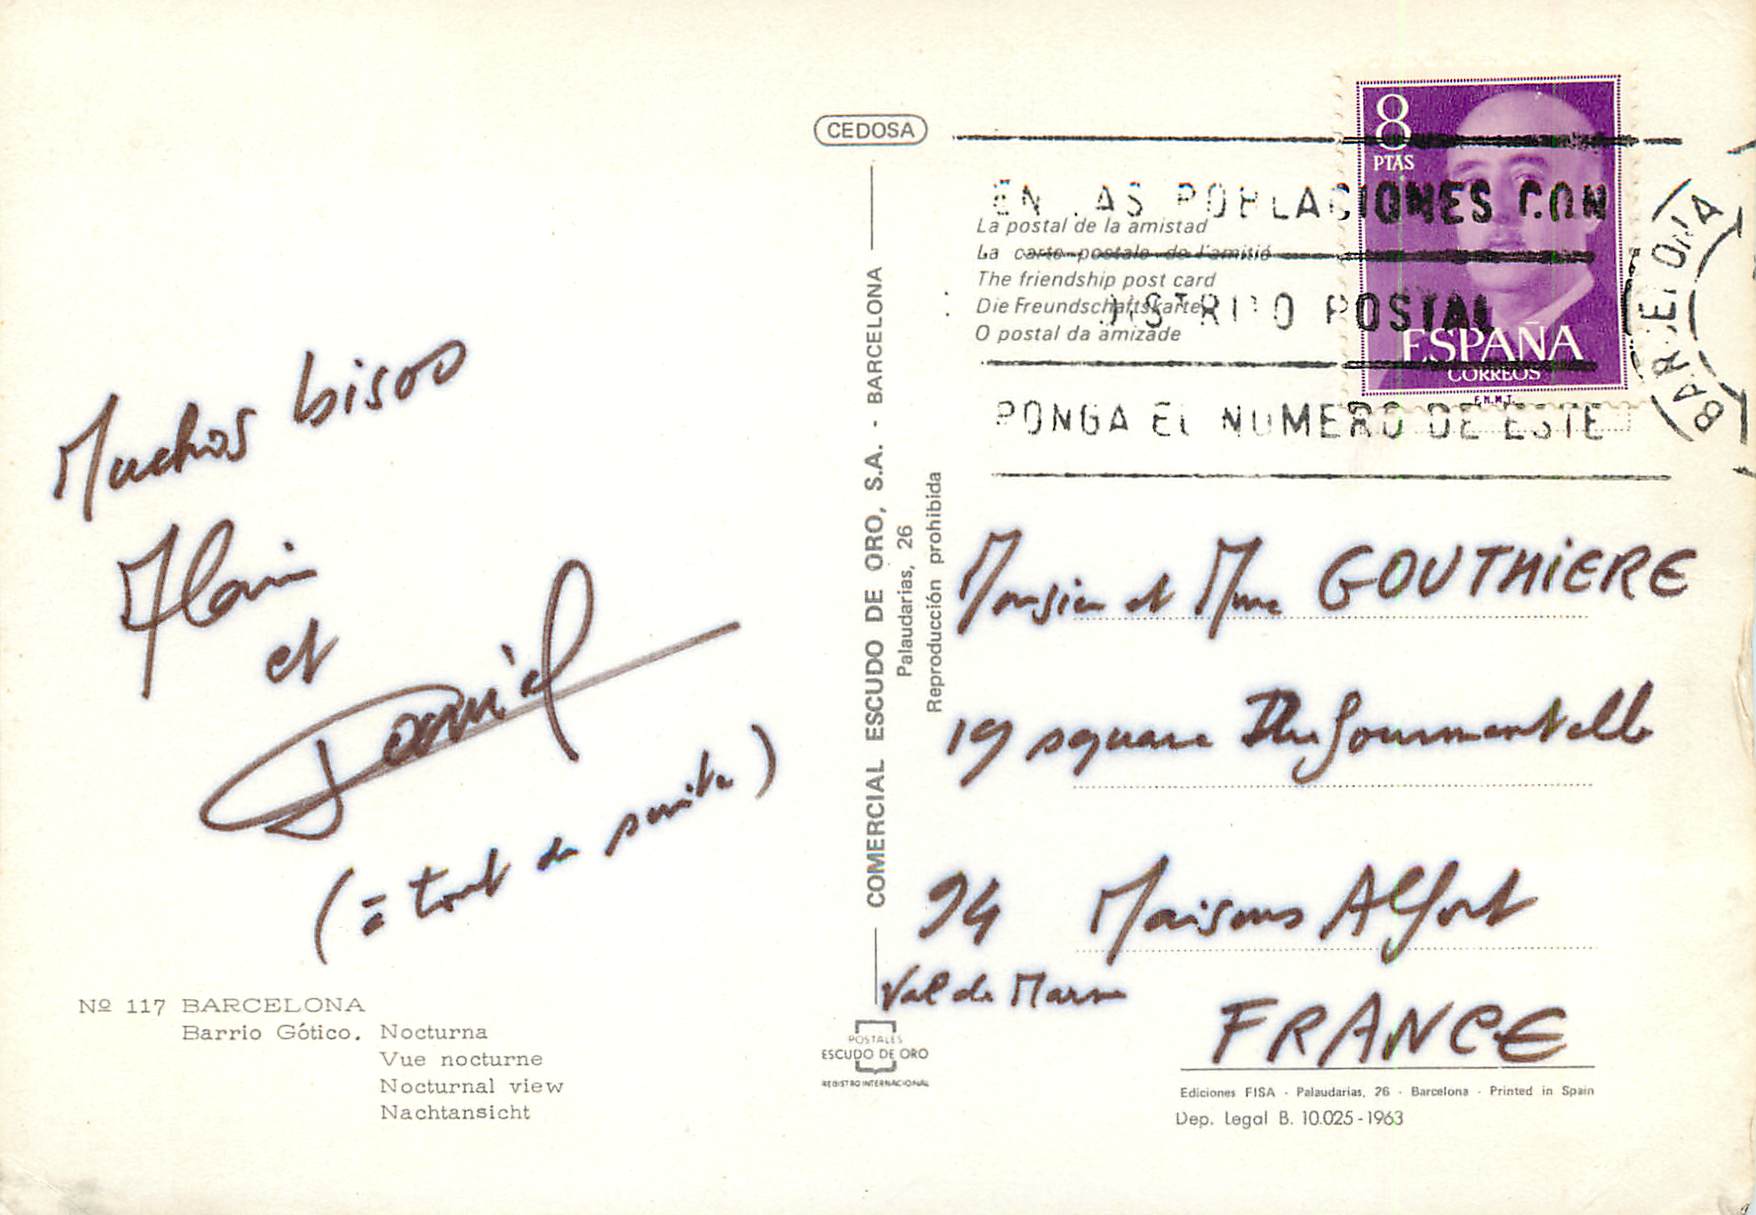 Muchos bisos
Alain
et
Daniel
(à tout de suite)
Nº 117 BARCELONA
Barrio Gótico. Nocturna
Vue nocturne
Nocturnal view
Nachtansicht
CEDOSA
COMERCIAL ESCUDO DE ORO, S.A. - BARCELONA
Palaudarias, 26
Reproducción prohibida
POSTALES
ESCUDO DE ORO
REGISTRO INTERNACIONAL
La postal de la amistad
La carte postale de l'amitié
The friendship post card
Die Freundschaftskarte
O postal da amizade
EN LAS POBLACIONES CON
DISTRITO POSTAL
PONGA EL NUMERO DE ESTE
BARCELONA
8
PTAS
ESPAÑA
CORREOS
F.N.M.T.
Monsieur et Mme GOUTHIERE
19 square Dufourmentelle
94 Maisons Alfort
Val de Marne
FRANCE
Ediciones FISA - Palaudarias, 26 - Barcelona - Printed in Spain
Dep. Legal B. 10.025-1963